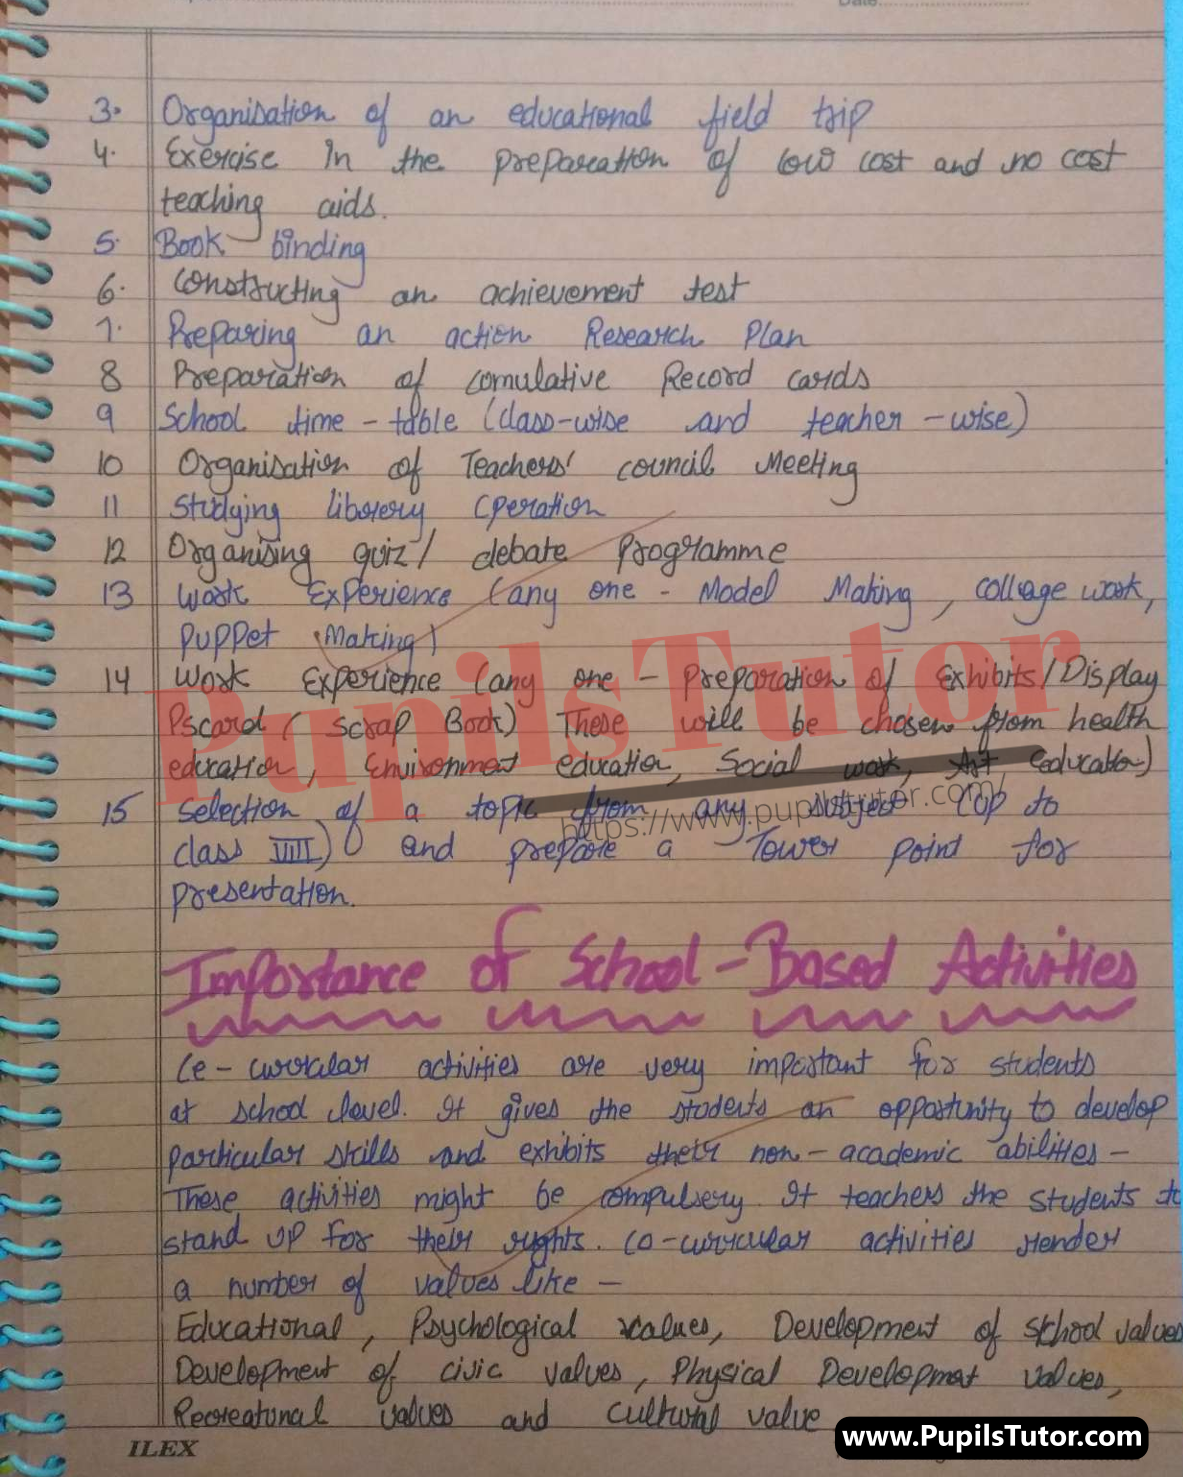 Date
3. Organisation of an educational field trip
4. Exercise In the preparation of low cost and no cost
teaching aids.
5. Book binding
6. Constructing an achievement test
7. Preparing an action Research Plan
8 Preparation of comulative Record cards
9 School time - table (class-wise and teacher - wise)
10 Organisation of Teachers' council Meeting
11 Studying library Operation
12 Organising quiz / debate programme
13 Work Experience (any one - Model Making, collage work,
puppet Making)
14 Work Experience (any one - Preparation of Exhibits/Display
Pscard ( Scrap Book) These will be chosen from health
education, Environment education, Social work, Art education)
15 Selection of a topic from any subject (up to
class VIII) and prepare a Power point for
presentation.
Importance of School - Based Activities
Co - curricular activities are very important for students
at school level. It gives the students an opportunity to develop
particular skills and exhibits their non - academic abilities -
These activities might be compulsery. It teachers the students to
stand up for their rights. Co-curricular activities render
a number of values like -
Educational, Psychological values, Development of school values
Development of civic values, Physical Development values,
Recreational values and cultural value
ILEX
Pupils Tutor
https://www.pupilstutor.com
www.PupilsTutor.com